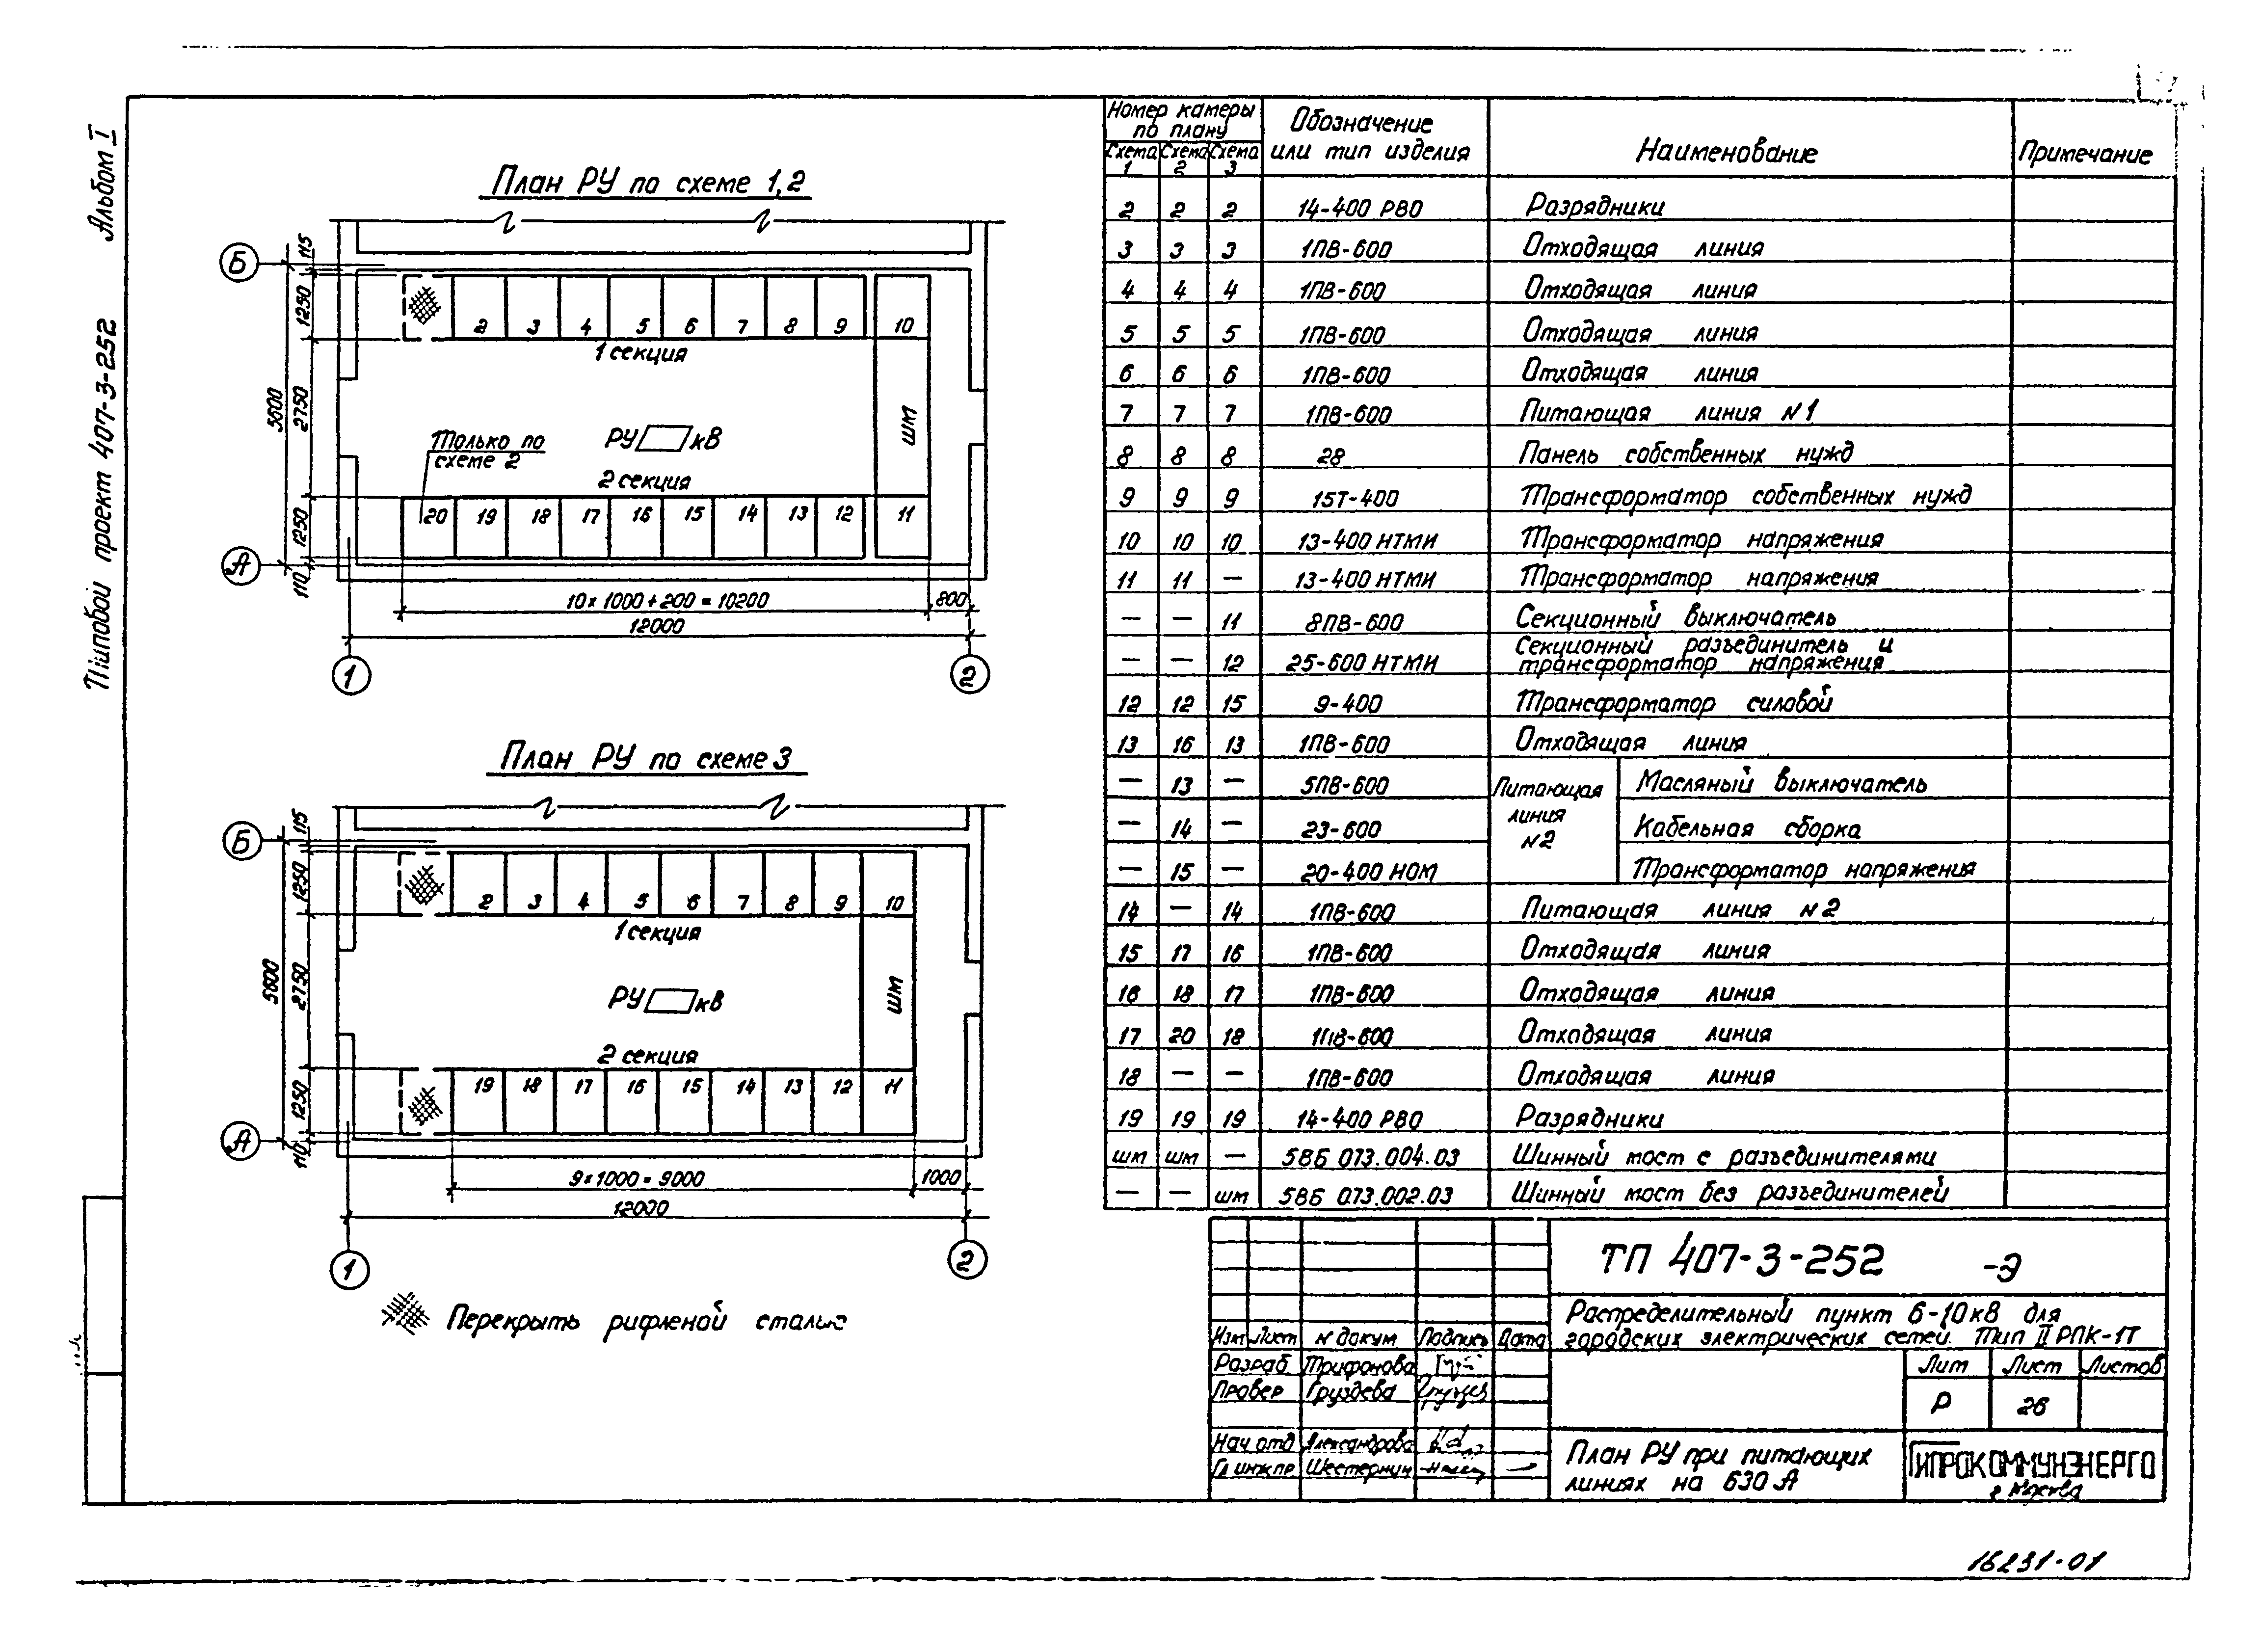 Альбом I
Типовой проект 407-3-252
План РУ по схеме 1,2
Б
115
1250
2750
5600
1250
110
А
2 3 4 5 6 7 8 9 10
1 секция
Только по
схеме 2
РУ кВ
ШМ
2 секция
20 19 18 17 16 15 14 13 12 11
10×1000+200=10200
800
12000
1 2
План РУ по схеме 3
Б
115
1250
2750
5600
1250
110
А
2 3 4 5 6 7 8 9 10
1 секция
РУ кВ
ШМ
2 секция
19 18 17 16 15 14 13 12 11
9×1000=9000
1000
12000
1 2
Перекрыть рифленой сталью
Номер камеры
по плану
Схема 1 Схема 2 Схема 3
Обозначение
или тип изделия
Наименование
Примечание
2 2 2 14-400 РВО Разрядники
3 3 3 1ПВ-600 Отходящая линия
4 4 4 1ПВ-600 Отходящая линия
5 5 5 1ПВ-600 Отходящая линия
6 6 6 1ПВ-600 Отходящая линия
7 7 7 1ПВ-600 Питающая линия N1
8 8 8 28 Панель собственных нужд
9 9 9 15Т-400 Трансформатор собственных нужд
10 10 10 13-400 НТМИ Трансформатор напряжения
11 11 — 13-400 НТМИ Трансформатор напряжения
— — 11 8ПВ-600 Секционный выключатель
— — 12 25-600 НТМИ Секционный разъединитель и
трансформатор напряжения
12 12 15 9-400 Трансформатор силовой
13 16 13 1ПВ-600 Отходящая линия
Питающая
линия
N2
— 13 — 5ПВ-600 Масляный выключатель
— 14 — 23-600 Кабельная сборка
— 15 — 20-400 НОМ Трансформатор напряжения
14 — 14 1ПВ-600 Питающая линия N2
15 17 16 1ПВ-600 Отходящая линия
16 18 17 1ПВ-600 Отходящая линия
17 20 18 1ПВ-600 Отходящая линия
18 — — 1ПВ-600 Отходящая линия
19 19 19 14-400 РВО Разрядники
шм шм — 5ВБ 073.004.03 Шинный мост с разъединителями
— — шм 5ВБ 073.002.03 Шинный мост без разъединителей
ТП 407-3-252 -Э
Распределительный пункт 6-10кВ для
городских электрических сетей. Тип II РПК-1Т
Изм Лист N докум Подпись Дата
Разраб Трифонова
Провер Груздева
Нач отд Александрова
Гл инж пр Шестернин
Лит Лист Листов
Р 26
План РУ при питающих
линиях на 630 А
ГИПРОКОММУНЭНЕРГО
г Москва
16231-01